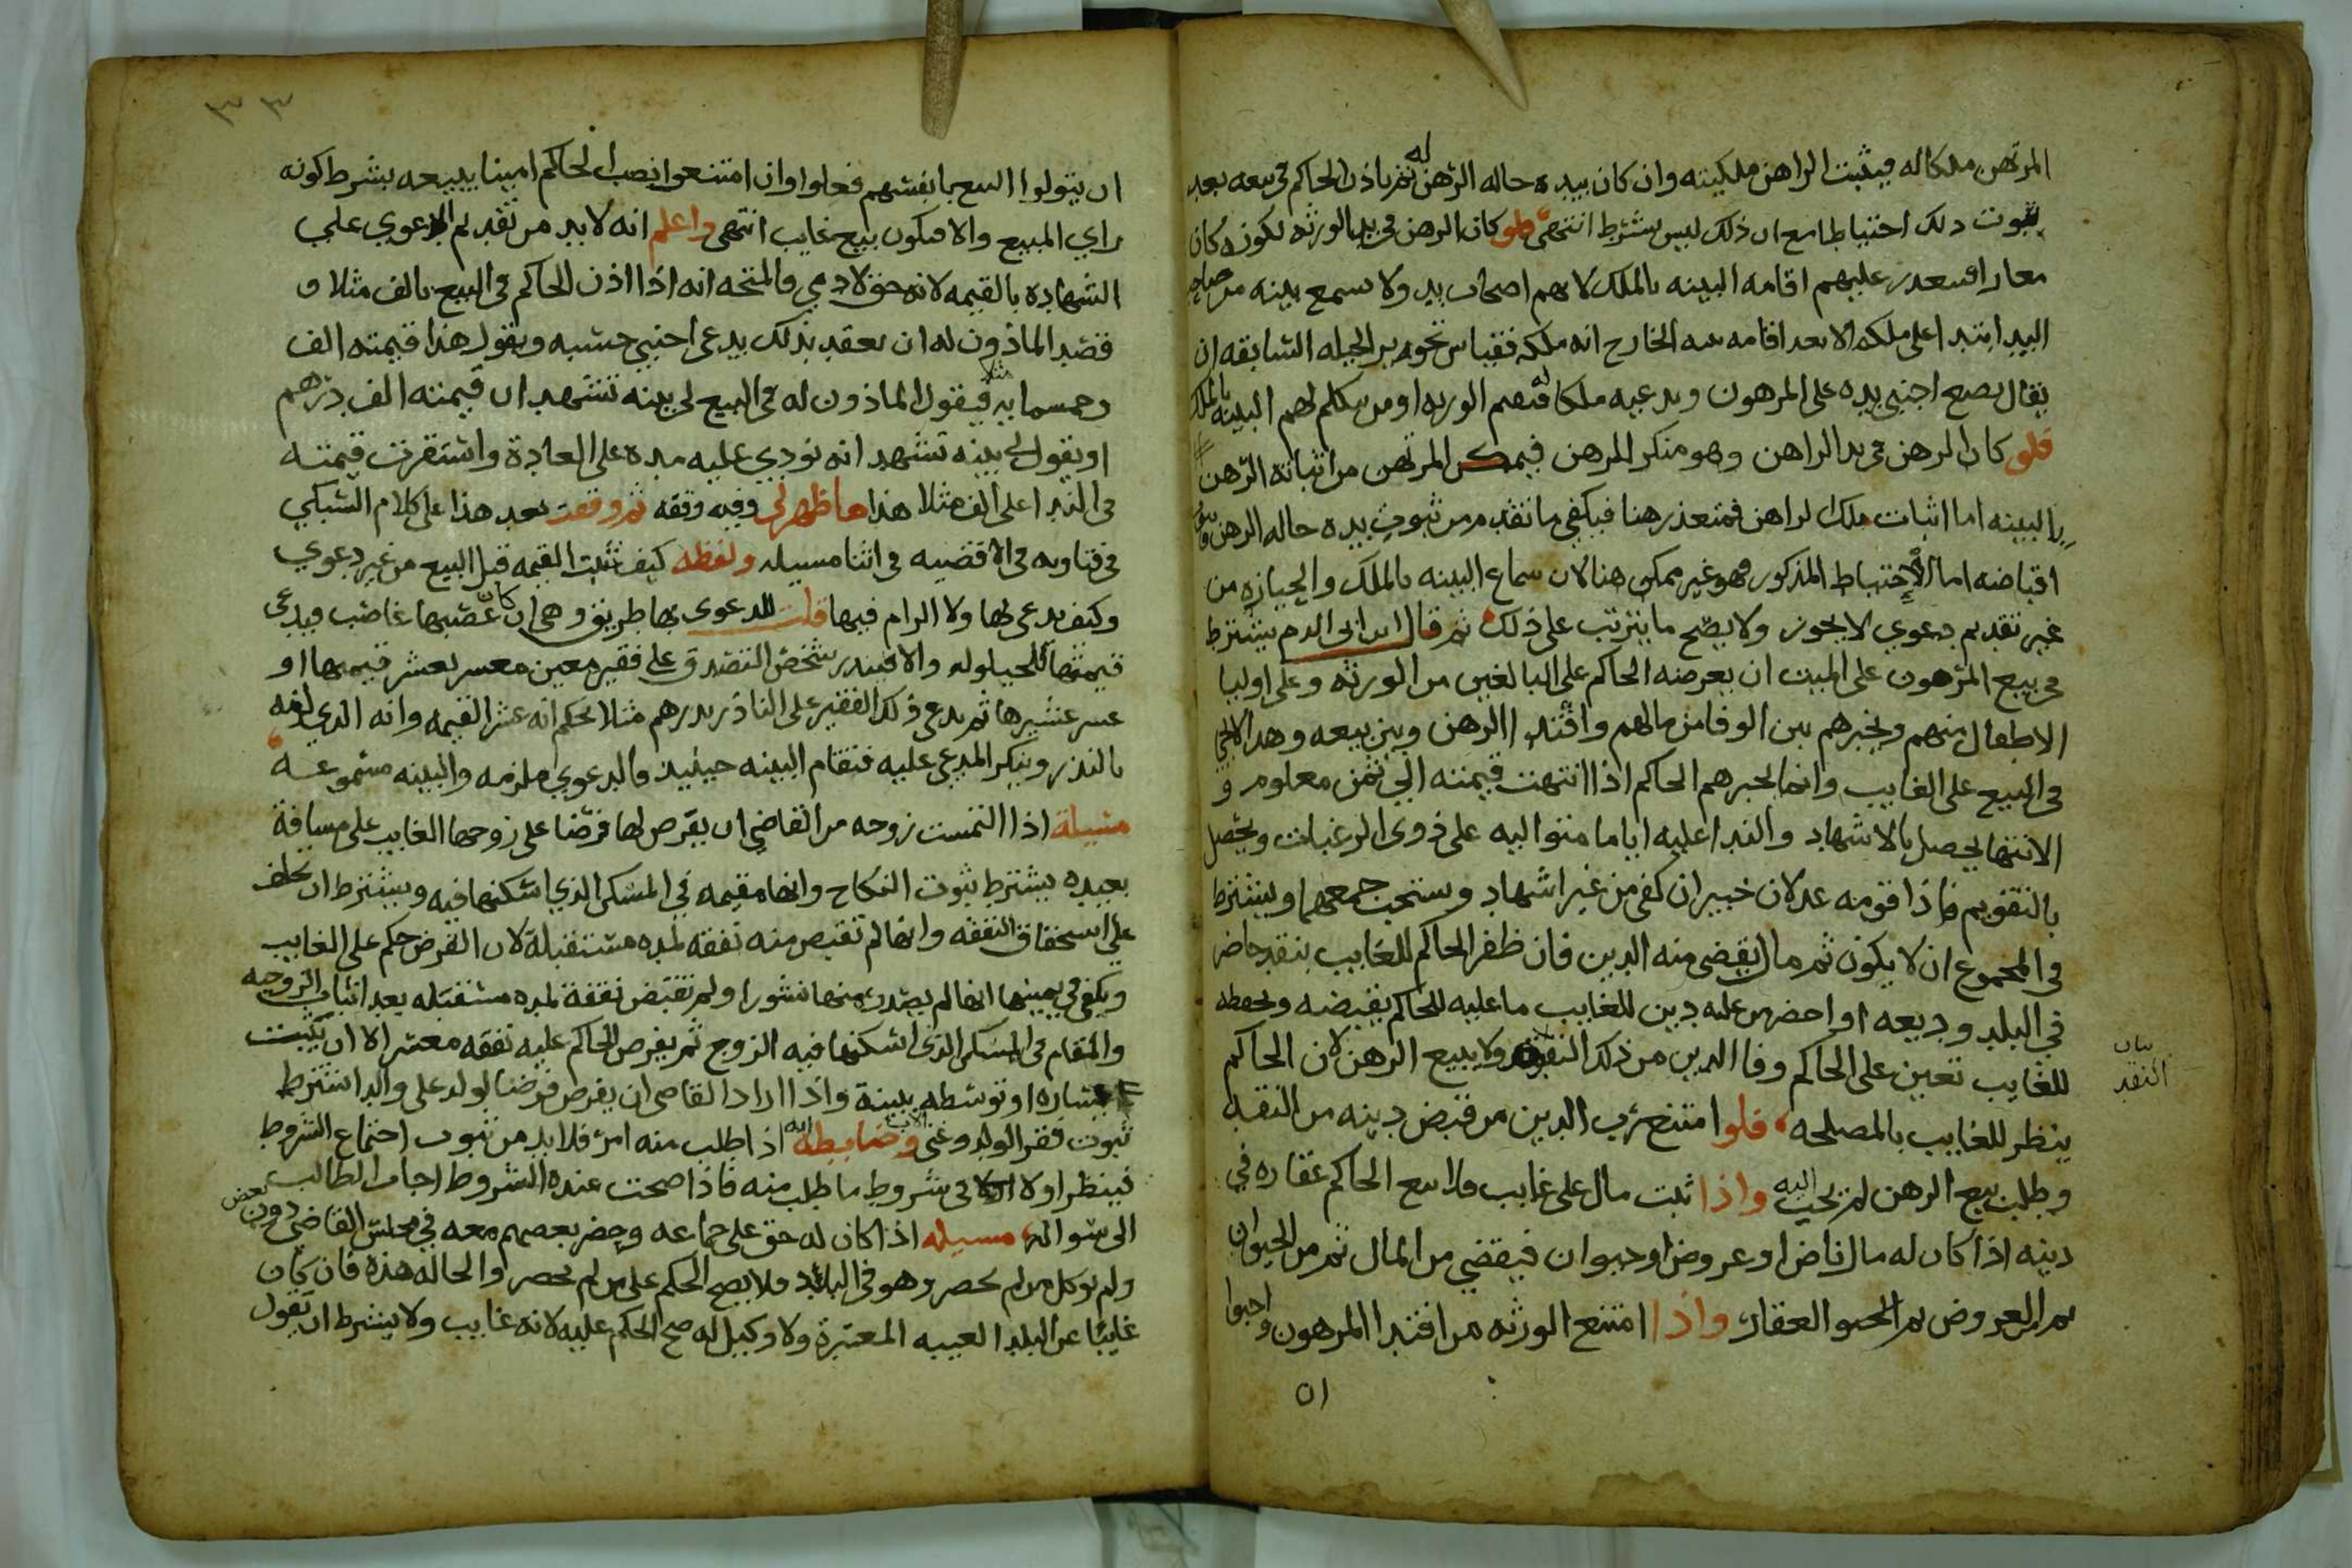 المرتهن ملكا له فيثبت الراهن ملكيته وان كان بيده حاله الرهن له ثم ياذن الحاكم في بيعه بعد
ثبوت ذلك احتياطا مع ان ذلك ليس بشرط انتهى فلو كان الرهن في يد الورثه لكونه كان
معارا فيتعذر عليهم اقامه البينه بالملك لانهم اصحاب يد ولا تسمع بينه من صاحب
اليد ابتدا على ملكه الا بعد اقامه بينه الخارج انه ملكه فقياس تجويز الحيله السابقه ان
يقال يضع اجنبي يده على المرهون ويدعيه ملكا فتقيم الورثه او من يتكلم لهم البينه بالملك
فلو كان الرهن في يد الراهن وهو منكر الرهن فيمكن المرتهن من اثباته الرهن
بالبينه اما اثبات ملك الراهن فمتعذر هنا فيكفي ما تقدم من ثبوت يده حاله الرهن
اقباضه اما الاحتياط المذكور فهو غير ممكن هنا لان سماع البينه بالملك والحيازه من
غير تقديم دعوي لا يجوز ولا يصح ما يترتب على ذلك ثم قال ابن ابي الدم يشترط
في بيع المرهون على الميت ان يعرضه الحاكم على البالغين من الورثه وعلى اوليا
الاطفال منهم ويخيرهم بين الوفا من مالهم وافتدا الرهن وبين بيعه وهذا لا يجي
في البيع على الغايب وانما يخيرهم الحاكم اذا انتهت قيمته الي ثمن معلوم و
الانتها يحصل بالاشهاد والندا عليه اياما متواليه على ذوي الرغبات ويحصل
بالتقويم فاذا قومه عدلان خبيران كفى من غير اشهاد ويستحب جمعهما ويشترط
في المجموع ان لا يكون ثم مال يقضى منه الدين فان ظفر الحاكم للغايب بنقد حاضر
في البلد وديعه او احضر من عليه دين للغايب ما عليه للحاكم يقبضه ويحفظه
للغايب تعين على الحاكم وفا الدين من ذلك النقد ولا يبيع الرهن لان الحاكم
بيان
النقد
ينظر للغايب بالمصلحه فلو امتنع رب الدين من قبض دينه من النقد
وطلب بيع الرهن لم يجب اليه واذا ثبت مال على غايب فلا يبيع الحاكم عقاره في
دينه اذا كان له مال ناض او عروض او حيوان فيقضي من المال ثم من الحيوان
ثم العروض ثم العقار واذا امتنع الورثه من افتدا المرهون واحبوا
ان
٣٣
ان يتولوا البيع بانفسهم فعلوا وان امتنعوا نصب الحاكم امينا يبيعه بشرط كونه
راي المبيع والا فيكون بيع غايب انتهى واعلم انه لا بد من تقديم الدعوي على
الشهاده بالقيمه لانه حق لادمي فالمتجه انه اذا اذن الحاكم في البيع بالف مثلا و
قصد الماذون له ان يعقد بذلك يدعى اجنبي حسبه ويقول هذا قيمته الف
وخمسمايه مثلا فيقول الماذون له في البيع لي بينه تشهد ان قيمته الف درهم
او يقول لي بينه تشهد انه نودي عليه مده على العادة واستقرت قيمته
في الندا على الف مثلا هذا ما ظهر لي وفيه وقفه ثم وقفت بعد هذا على كلام السبكي
في فتاويه في الاقضيه في اثنا مسيله ولفظه كيف تثبت القيمه قبل البيع من غير دعوي
وكيف يدعى بها ولا الزام فيها قلت للدعوى بها طريق وهي ان كان غصبها غاصب فيدعى
قيمتها للحيلوله والا فينذر شخص التصدق على فقير معين معسر بعشر قيمتها او
عشر عشيرها ثم يدعي ذلك الفقير على الناذر بدرهم مثلا بحكم انه عشر القيمه وانه الذي لزمه
بالنذر وينكر المدعى عليه فتقام البينه حينيذ فالدعوي ملزمه والبينه مسموعه
مسيلة اذا التمست زوجه من القاضي ان يفرض لها فرضا على زوجها الغايب على مسافة
بعيده يشترط ثبوت النكاح وانها مقيمه في المسكن الذي اسكنها فيه ويشترط ان تحلف
على استحقاق النفقه وانها لم تقبض منه نفقه لمده مستقبلة لان الفرض حكم على الغايب
ويكفي في يمينها انها لم يصدر منها نشوزا ولم تقبض نفقة لمده مستقبله بعد اثبات الزوجيه
والمقام في المسكن الذي اسكنها فيه الزوج ثم يفرض الحاكم عليه نفقه معسر الا ان يثبت
يساره او توسطه ببينة واذا اراد القاضي ان يفرض فرضا لولد على والد اشترط
ثبوت فقر الولد وغنى الاب وضابطه انه اذا طلب منه امر فلا بد من ثبوت اجتماع الشروط
فينظر اولا في شروط ما طلب منه فاذا صحت عنده الشروط اجاب الطالب
الى سواله مسيله اذا كان له حق على جماعه وحضر بعضهم معه في مجلس القاضي دون بعض
ولم يوكل من لم يحضر وهو في البلد فلا يصح الحكم على من لم يحضر والحاله هذه فان كان
غايبا عن البلد الغيبه المعتبرة ولا وكيل له صح الحكم عليه لانه غايب ولا يشترط ان يقول